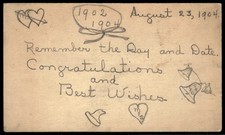 1902
1904
August 23, 1904.
Remember the Day and Date.
Congratulations
and
Best Wishes.